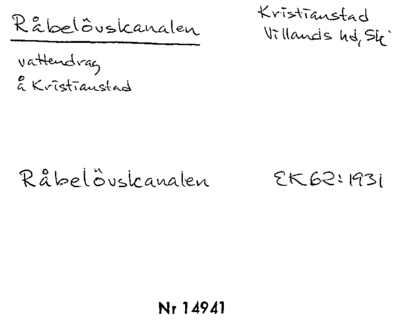 Råbelövskanalen
Kristianstad
Villands hd, Sk
vattendrag
å Kristianstad
Råbelövskanalen
EK62:1931
Nr 14941